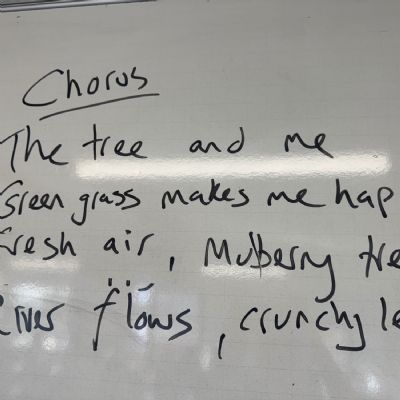 Chorus
The tree and me
Green grass makes me hap
Fresh air, Mulberry tre
River flows, crunchy le